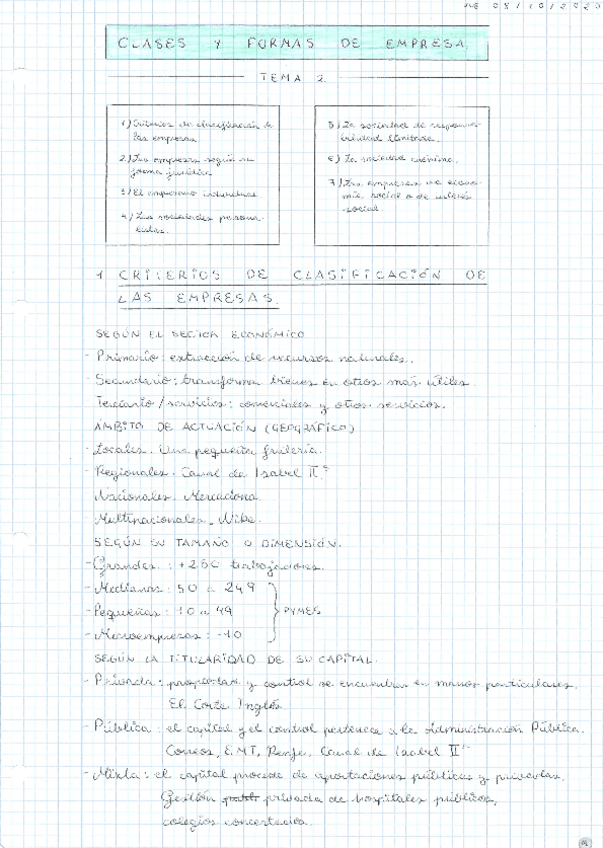 08/10/2020
CLASES Y FORMAS DE EMPRESA
TEMA 2
1) Criterios de clasificación de
las empresas
2) Las empresas según su
forma jurídica
3) El empresario individual
4) Las sociedades persona-
listas.
5) La sociedad de responsa-
bilidad limitada.
6) La sociedad anónima.
7) Las empresas de econo-
mía social o de interés
social.
1 CRITERIOS DE CLASIFICACIÓN DE
LAS EMPRESAS.
SEGÚN EL SECTOR ECONÓMICO
- Primario: extracción de recursos naturales.
- Secundario: transforma bienes en otros más útiles
Terciario/servicios: comerciales y otros servicios.
ÁMBITO DE ACTUACIÓN (GEOGRÁFICO)
- Locales. Una pequeña frutería.
- Regionales. Canal de Isabel II.
Nacionales. Mercadona.
Multinacionales. Nike.
SEGÚN SU TAMAÑO O DIMENSIÓN.
- Grandes: +250 trabajadores.
- Medianas: 50 a 249
- Pequeñas: 10 a 49
- Microempresas: -10
PYMES
SEGÚN LA TITULARIDAD DE SU CAPITAL.
- Privada: propiedad y control se encuentra en manos particulares.
El Corte Inglés
- Pública: el capital y el control pertenece a la Administración Pública.
Correos, E.M.T, Renfe, Canal de Isabel II
- Mixta: el capital procede de aportaciones públicas y privadas.
Gestión privada de hospitales públicos,
colegios concertados.